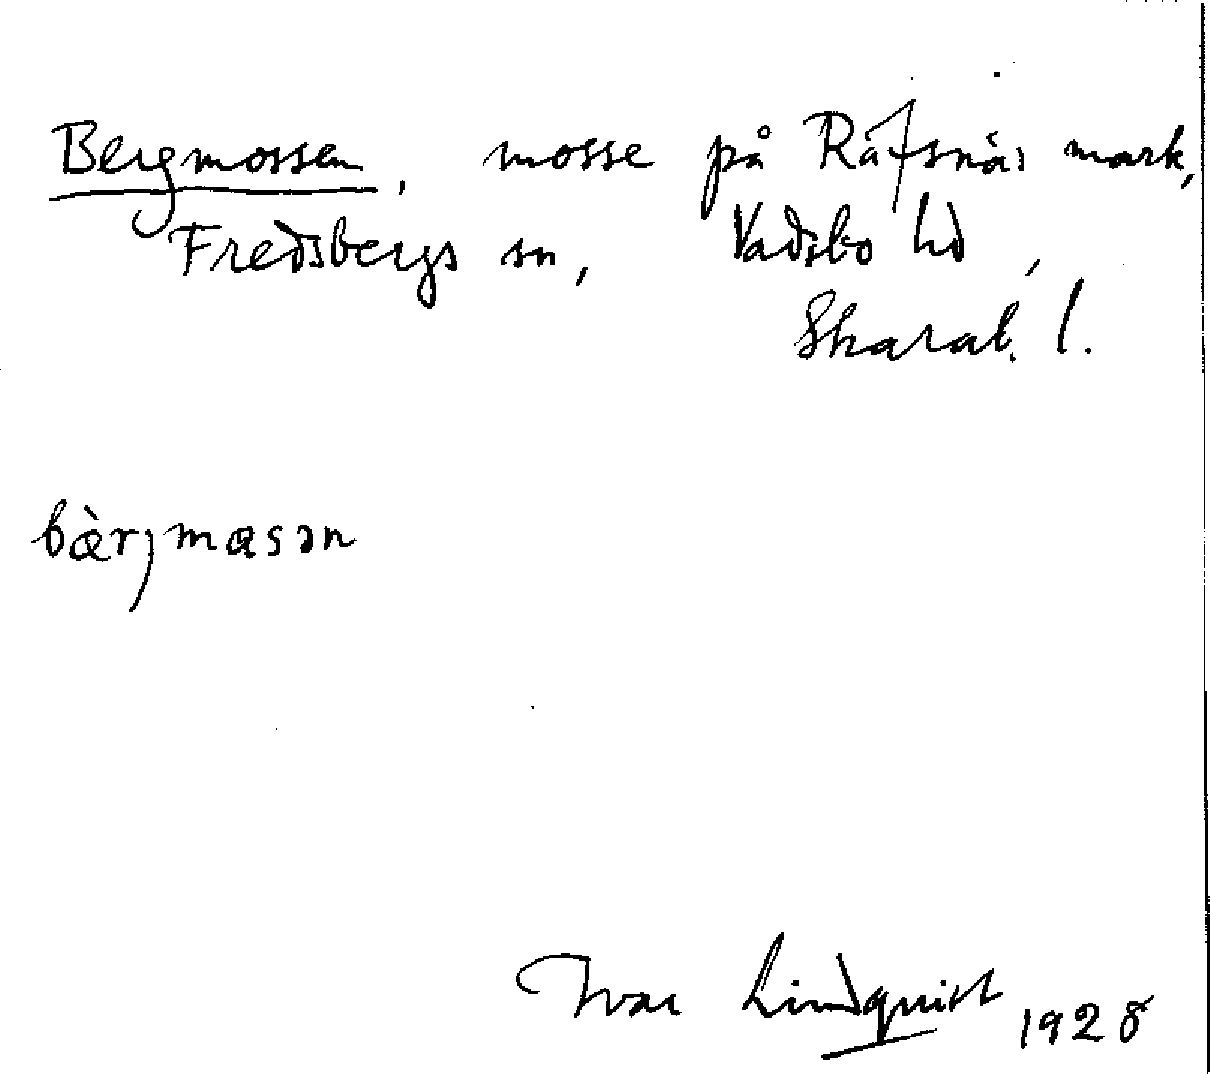 Bergmossen, mosse på Räfsnäs mark,
Fredsbergs sn, Vadsbo hd,
Skarab. l.
bæ̀rjmasən
Ivar Lindquist 1928